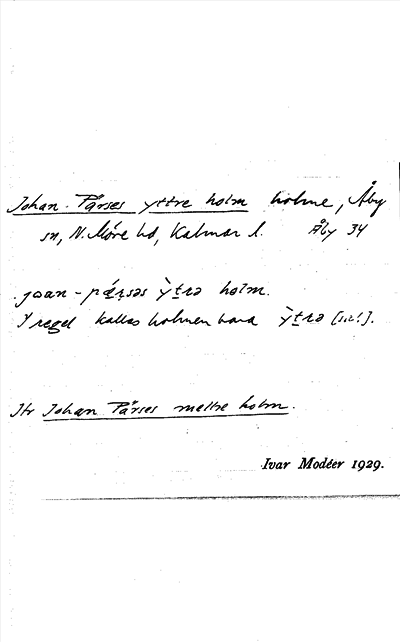 Johan-Pärses yttre holm holme, Åby
sn, N. Möre hd, Kalmar l. Åby 34
joan-pæ̣rsəs ỳtrə holm.
I regel kallas holmen bara ỳtrə [sic!].
Jfr Johan Pärses mellre holm.
Ivar Modéer 1929.